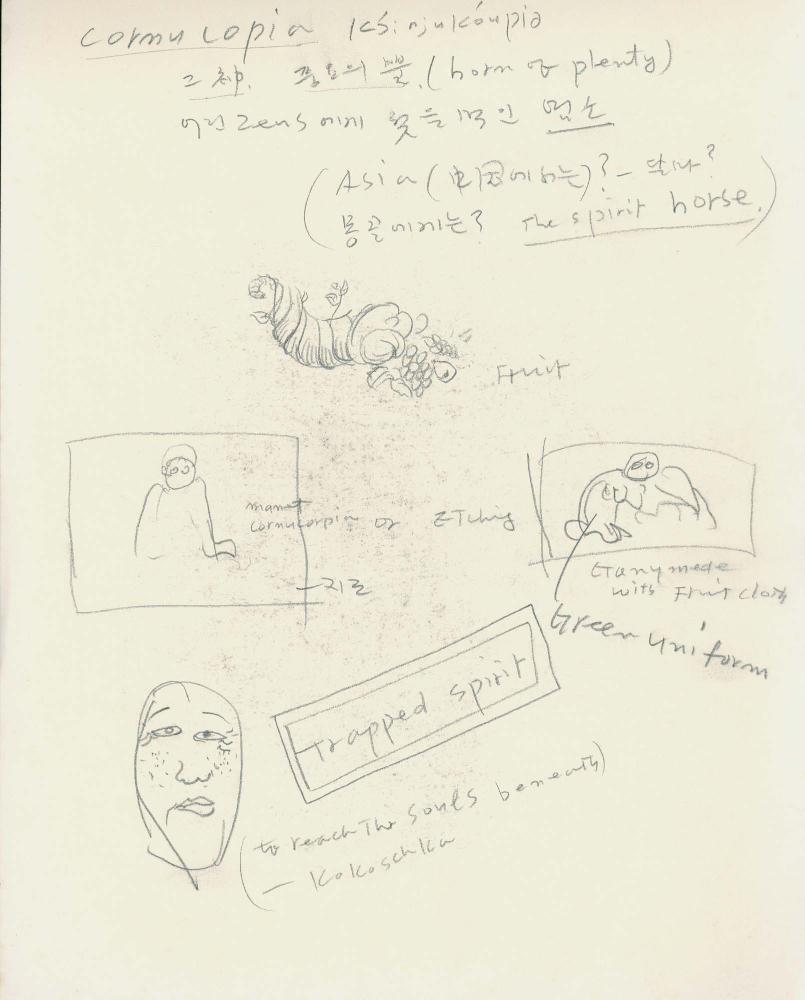 cornucopia kɔ́ːnjukóupiə
그神. 풍요의 뿔. (horn of plenty)
어린 Zeus에게 젖을 먹인 염소
(Asia (中国에서는)? — 있나?
몽골에게는? The spirit horse.)
Fruit
cornucorpia or Etching
Ganymede
with Fruit cloth
Green uniform
Trapped spirit
(to reach The souls beneath)
— Kokoschka